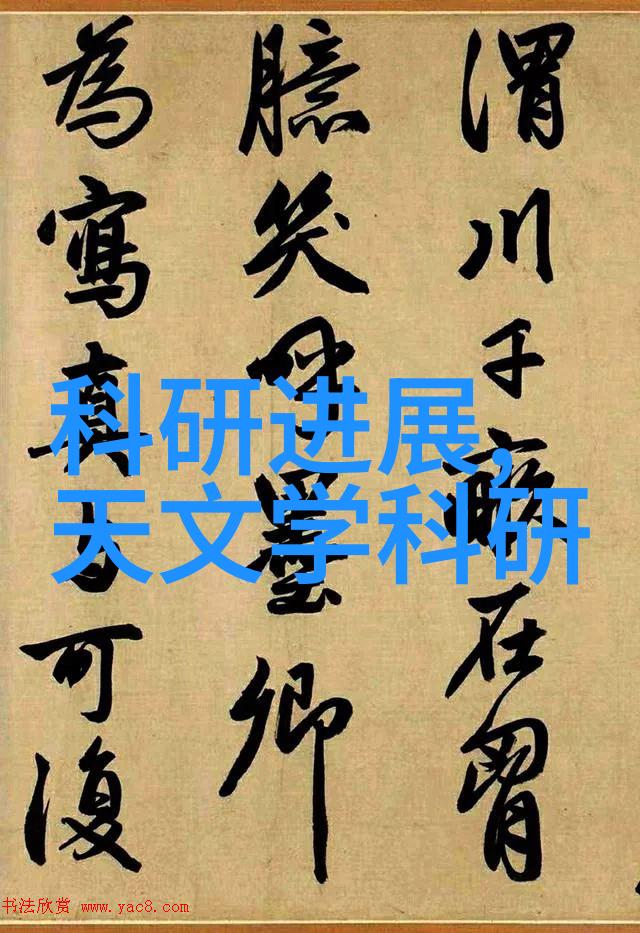 渭川千畝在胷
臆笑呼墨卿
為寫真与可復
科研进展,
天文学科研
书法欣赏 www.yac8.com